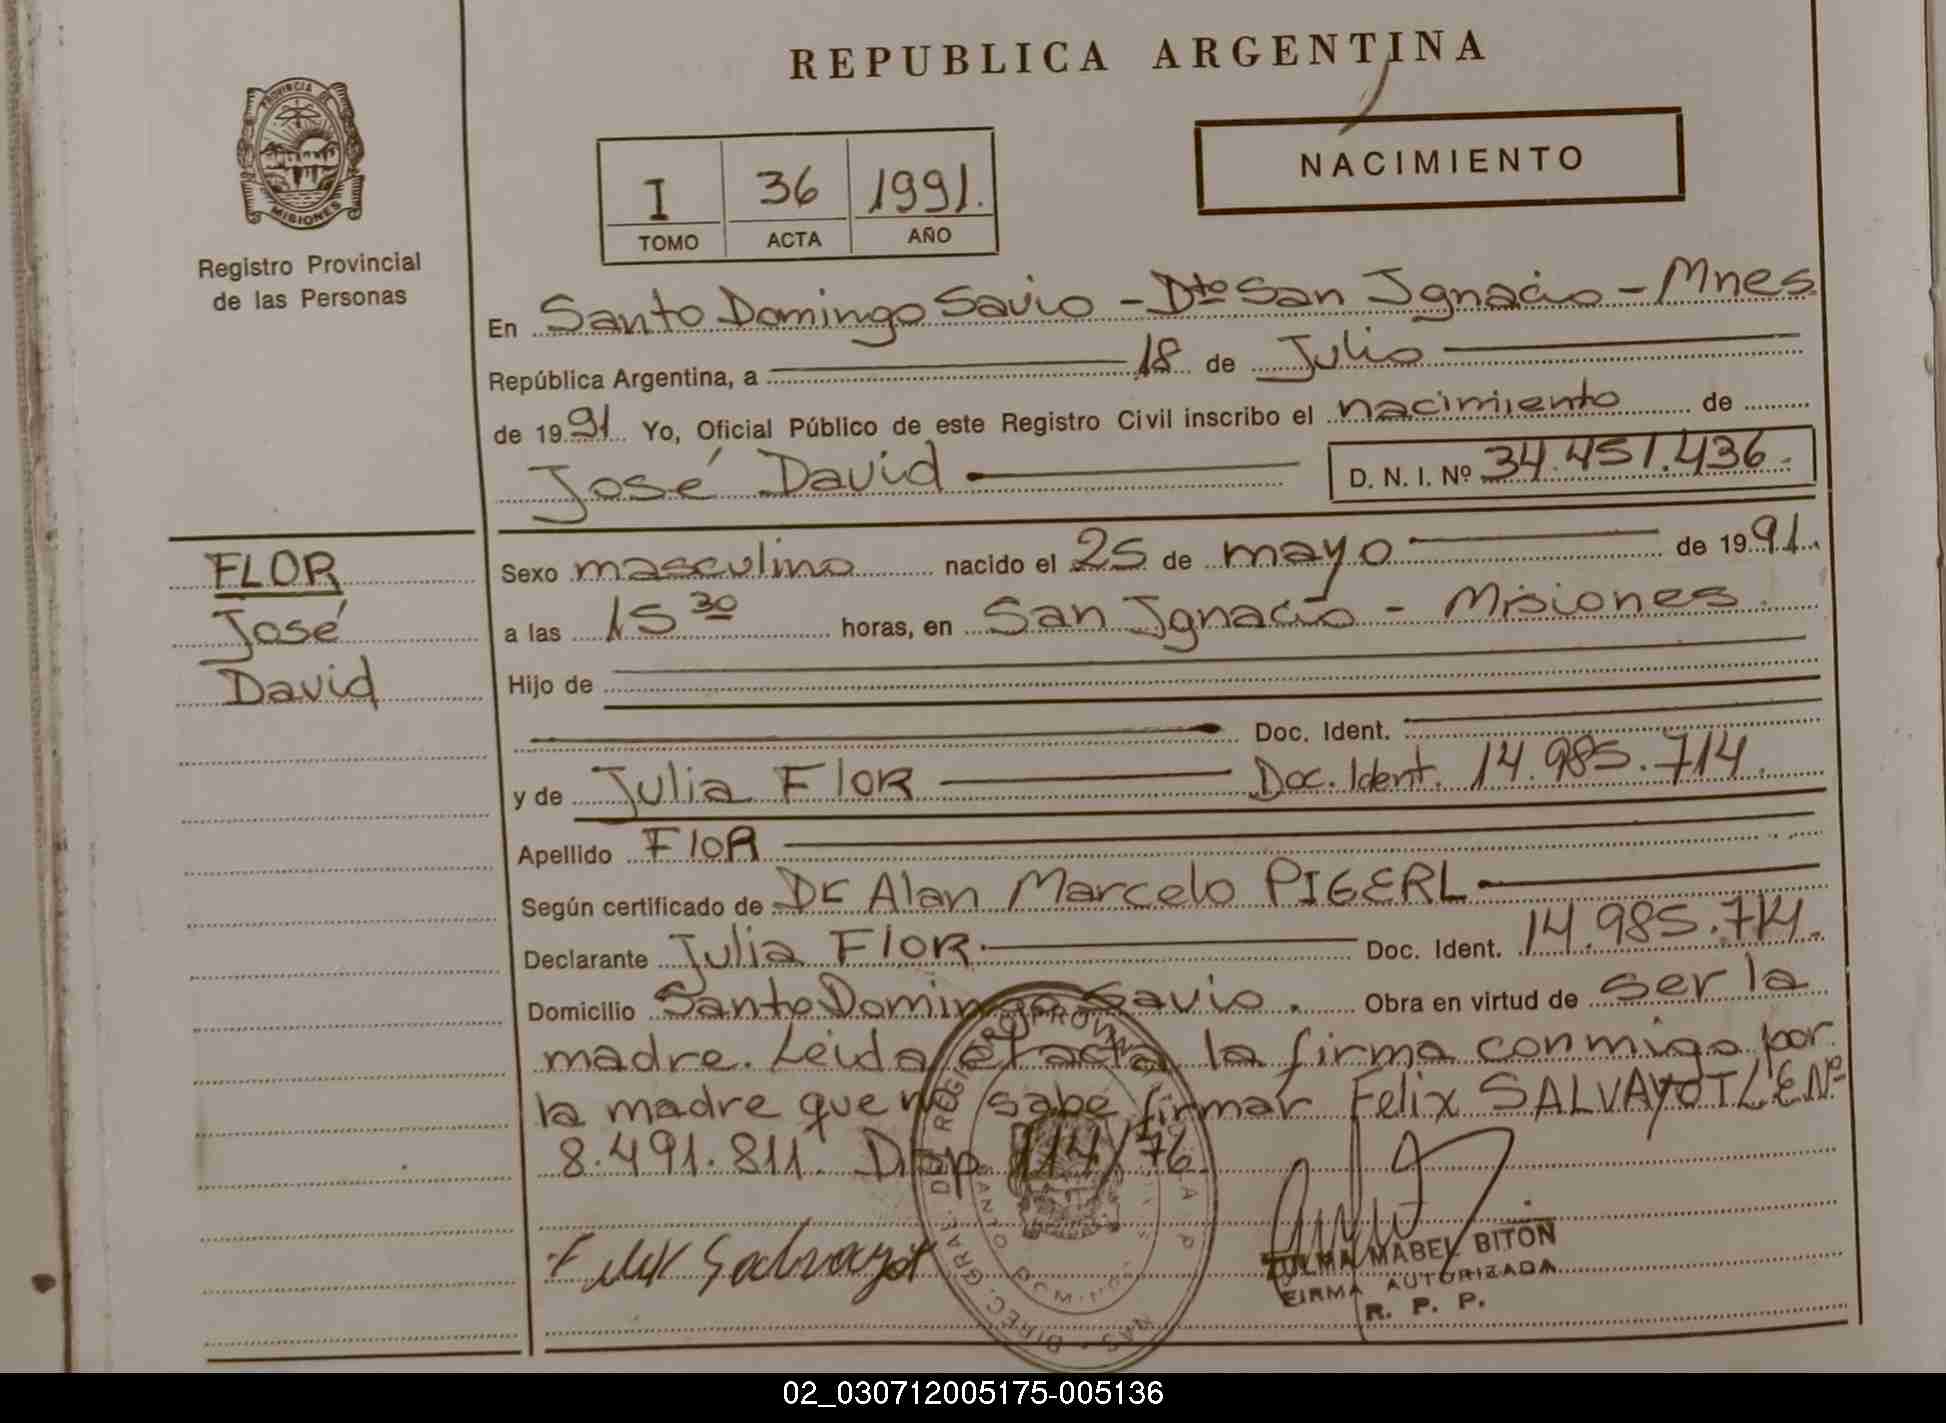 REPUBLICA ARGENTINA
PROVINCIA DE
MISIONES
Registro Provincial
de las Personas
I 36 1991.
TOMO ACTA AÑO
NACIMIENTO
En Santo Domingo Savio - Dto San Ignacio - Mnes.
República Argentina, a 18 de Julio
de 1991 Yo, Oficial Público de este Registro Civil inscribo el nacimiento de
José David D. N. I. Nº 34.451.436.
FLOR
José
David
Sexo masculino nacido el 25 de mayo de 1991.
a las 15 30 horas, en San Ignacio - Misiones.
Hijo de
Doc. Ident.
y de Julia Flor Doc. Ident. 14.985.714.
Apellido Flor
Según certificado de Dr Alan Marcelo PIGERL
Declarante Julia Flor. Doc. Ident. 14.985.714.
Domicilio Santo Domingo Savio. Obra en virtud de ser la
madre. Leida el acta la firma conmigo por
la madre que no sabe firmar Felix SALVAYOT L.E Nº
8.491.811. Disp 114/76
Felix Salvayot
ZULMA MABEL BITON
FIRMA AUTORIZADA
R. P. P.
02_030712005175-005136